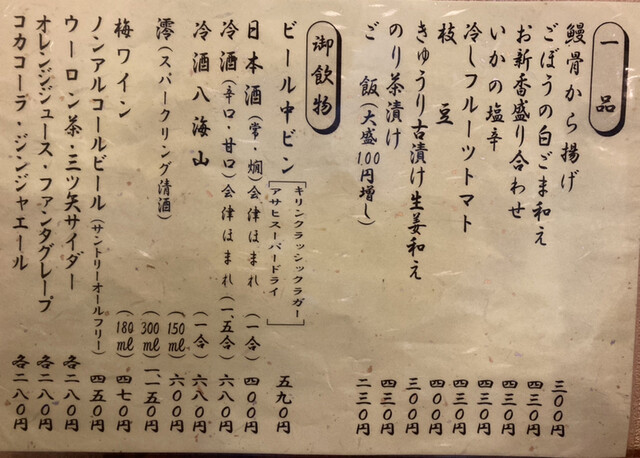 一品
鰻骨から揚げ 三〇〇円
ごぼうの白ごま和え 四三〇円
お新香盛り合わせ 四三〇円
いかの塩辛 四三〇円
冷しフルーツトマト 四三〇円
枝豆 四〇〇円
きゅうり古漬け生姜和え 三〇〇円
のり茶漬け 四三〇円
ご飯(大盛100円増し) 二三〇円
御飲物
ビール中ビン [キリンクラッシックラガー
アサヒスーパードライ] 五九〇円
日本酒(常・燗)会津ほまれ(一合) 四〇〇円
冷酒(辛口・甘口)会津ほまれ(一、五合) 六八〇円
冷酒八海山(一合) 六八〇円
澪(スパークリング清酒) 150ml 六〇〇円
300ml 一、一五〇円
梅ワイン(180ml) 四七〇円
ノンアルコールビール(サントリーオールフリー) 四五〇円
ウーロン茶・三ツ矢サイダー 各二八〇円
オレンジジュース・ファンタグレープ 各二八〇円
コカコーラ・ジンジャエール 各二八〇円